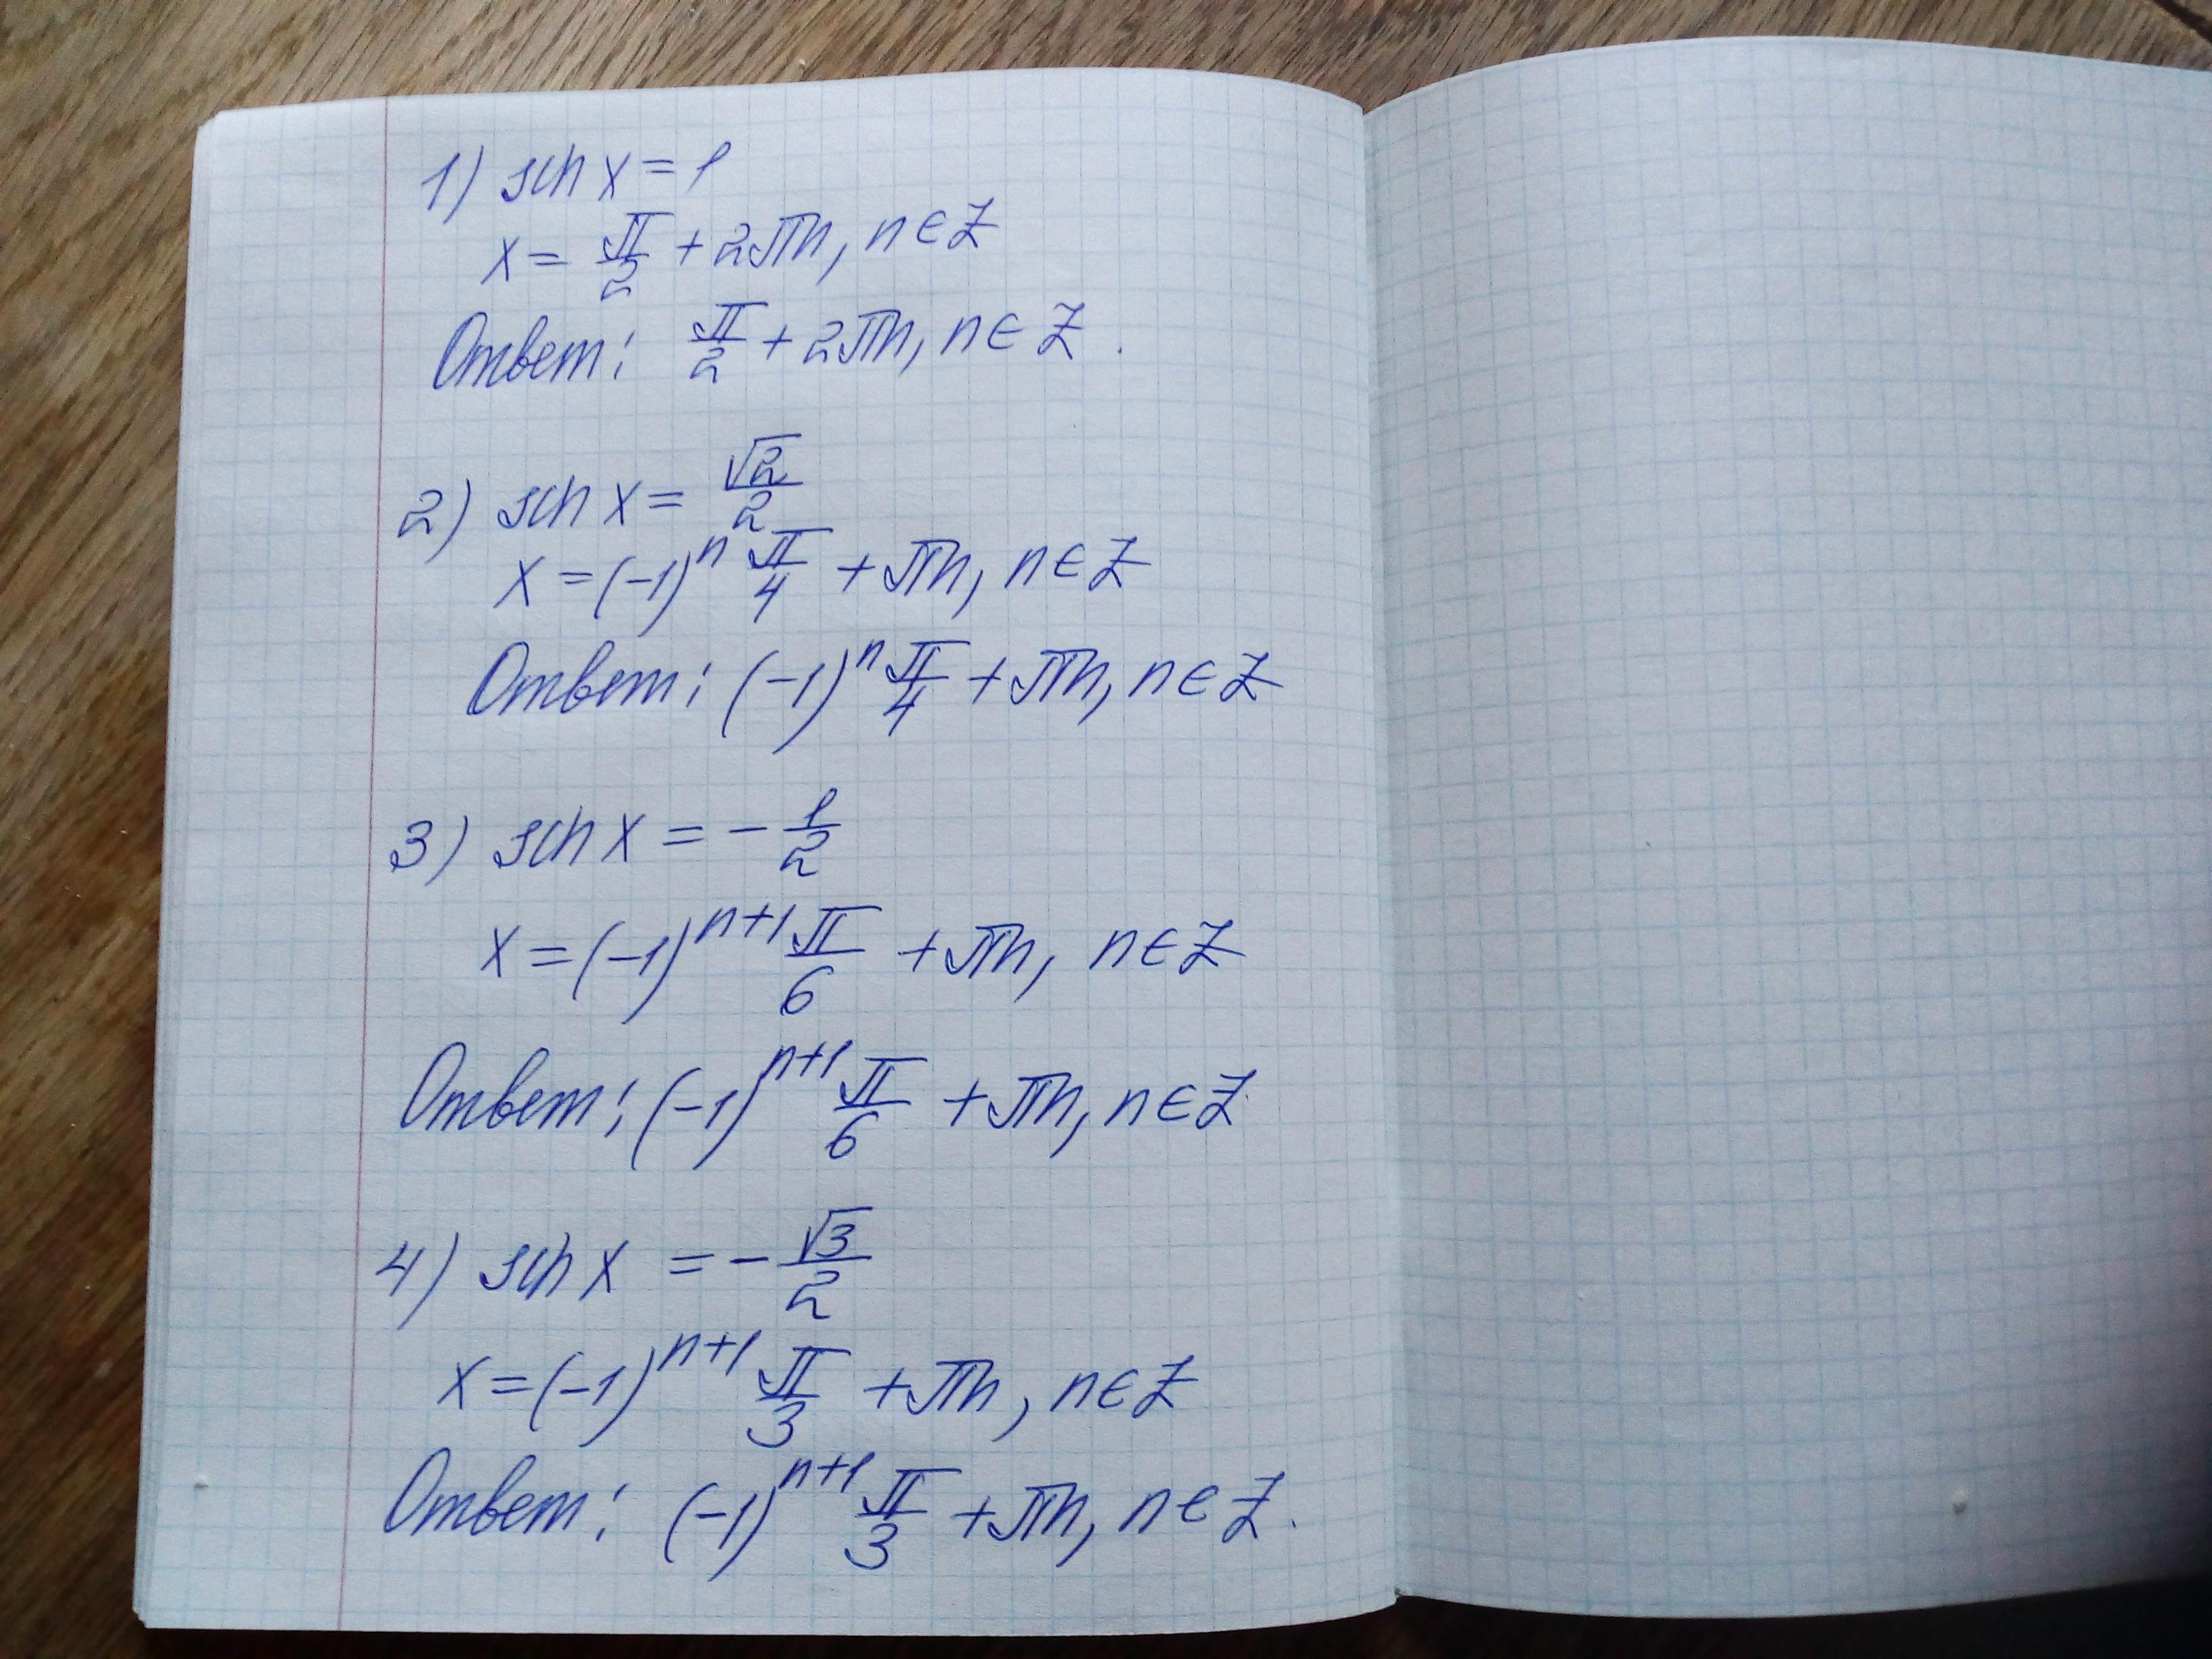 1) sin x = 1
x = π/2 + 2πn, n ∈ Z
Ответ: π/2 + 2πn, n ∈ Z.
2) sin x = √2/2
x = (-1)^n π/4 + πn, n ∈ Z
Ответ: (-1)^n π/4 + πn, n ∈ Z
3) sin x = - 1/2
x = (-1)^(n+1) π/6 + πn, n ∈ Z
Ответ: (-1)^(n+1) π/6 + πn, n ∈ Z.
4) sin x = - √3/2
x = (-1)^(n+1) π/3 + πn, n ∈ Z
Ответ: (-1)^(n+1) π/3 + πn, n ∈ Z.